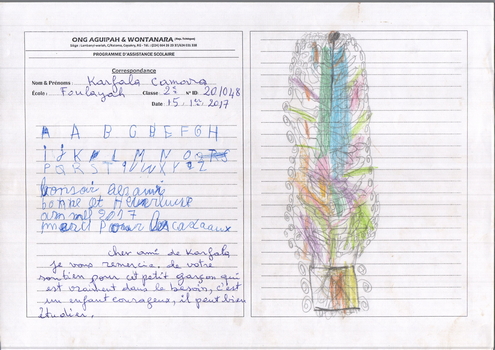 ONG AGUIPAH & WONTANARA (Rep. Tchèque)
PROGRAMME D'ASSISTANCE SCOLAIRE
Correspondance
Nom & Prénoms Karfala Camara
École Foulayah Classe 2e N° ID 20/048
Date 15. 1er 2017
A A B C D B E F G H
I J K L M N O
P Q R S T U V W X Y Z
bonsoir les amis
bonne et Heureuse
année 2017
merci Pour les cadeaux
cher ami de Karfala
je vous remercie, de votre
soutien pour cet petit garçon qui
est vraiment dans le besoin, c'est
un enfant courageux, il peut bien
étudier.